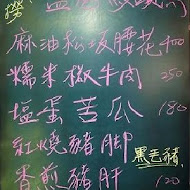 麻油松坂腰花 400
糯米椒牛肉 250
塩蛋苦瓜 180
紅燒豬脚 黑毛豬
香煎豬肝 120